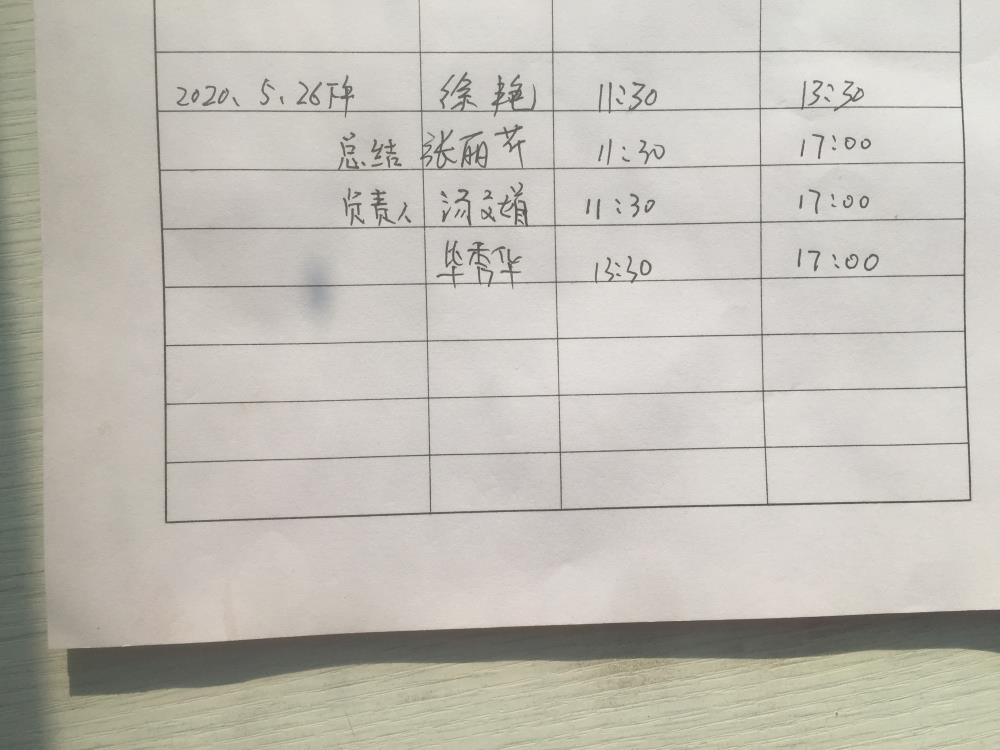 2020、5、26下午 徐艳 11:30 13:30
总结 张丽芹 11:30 17:00
负责人 汤文娟 11:30 17:00
毕秀华 13:30 17:00